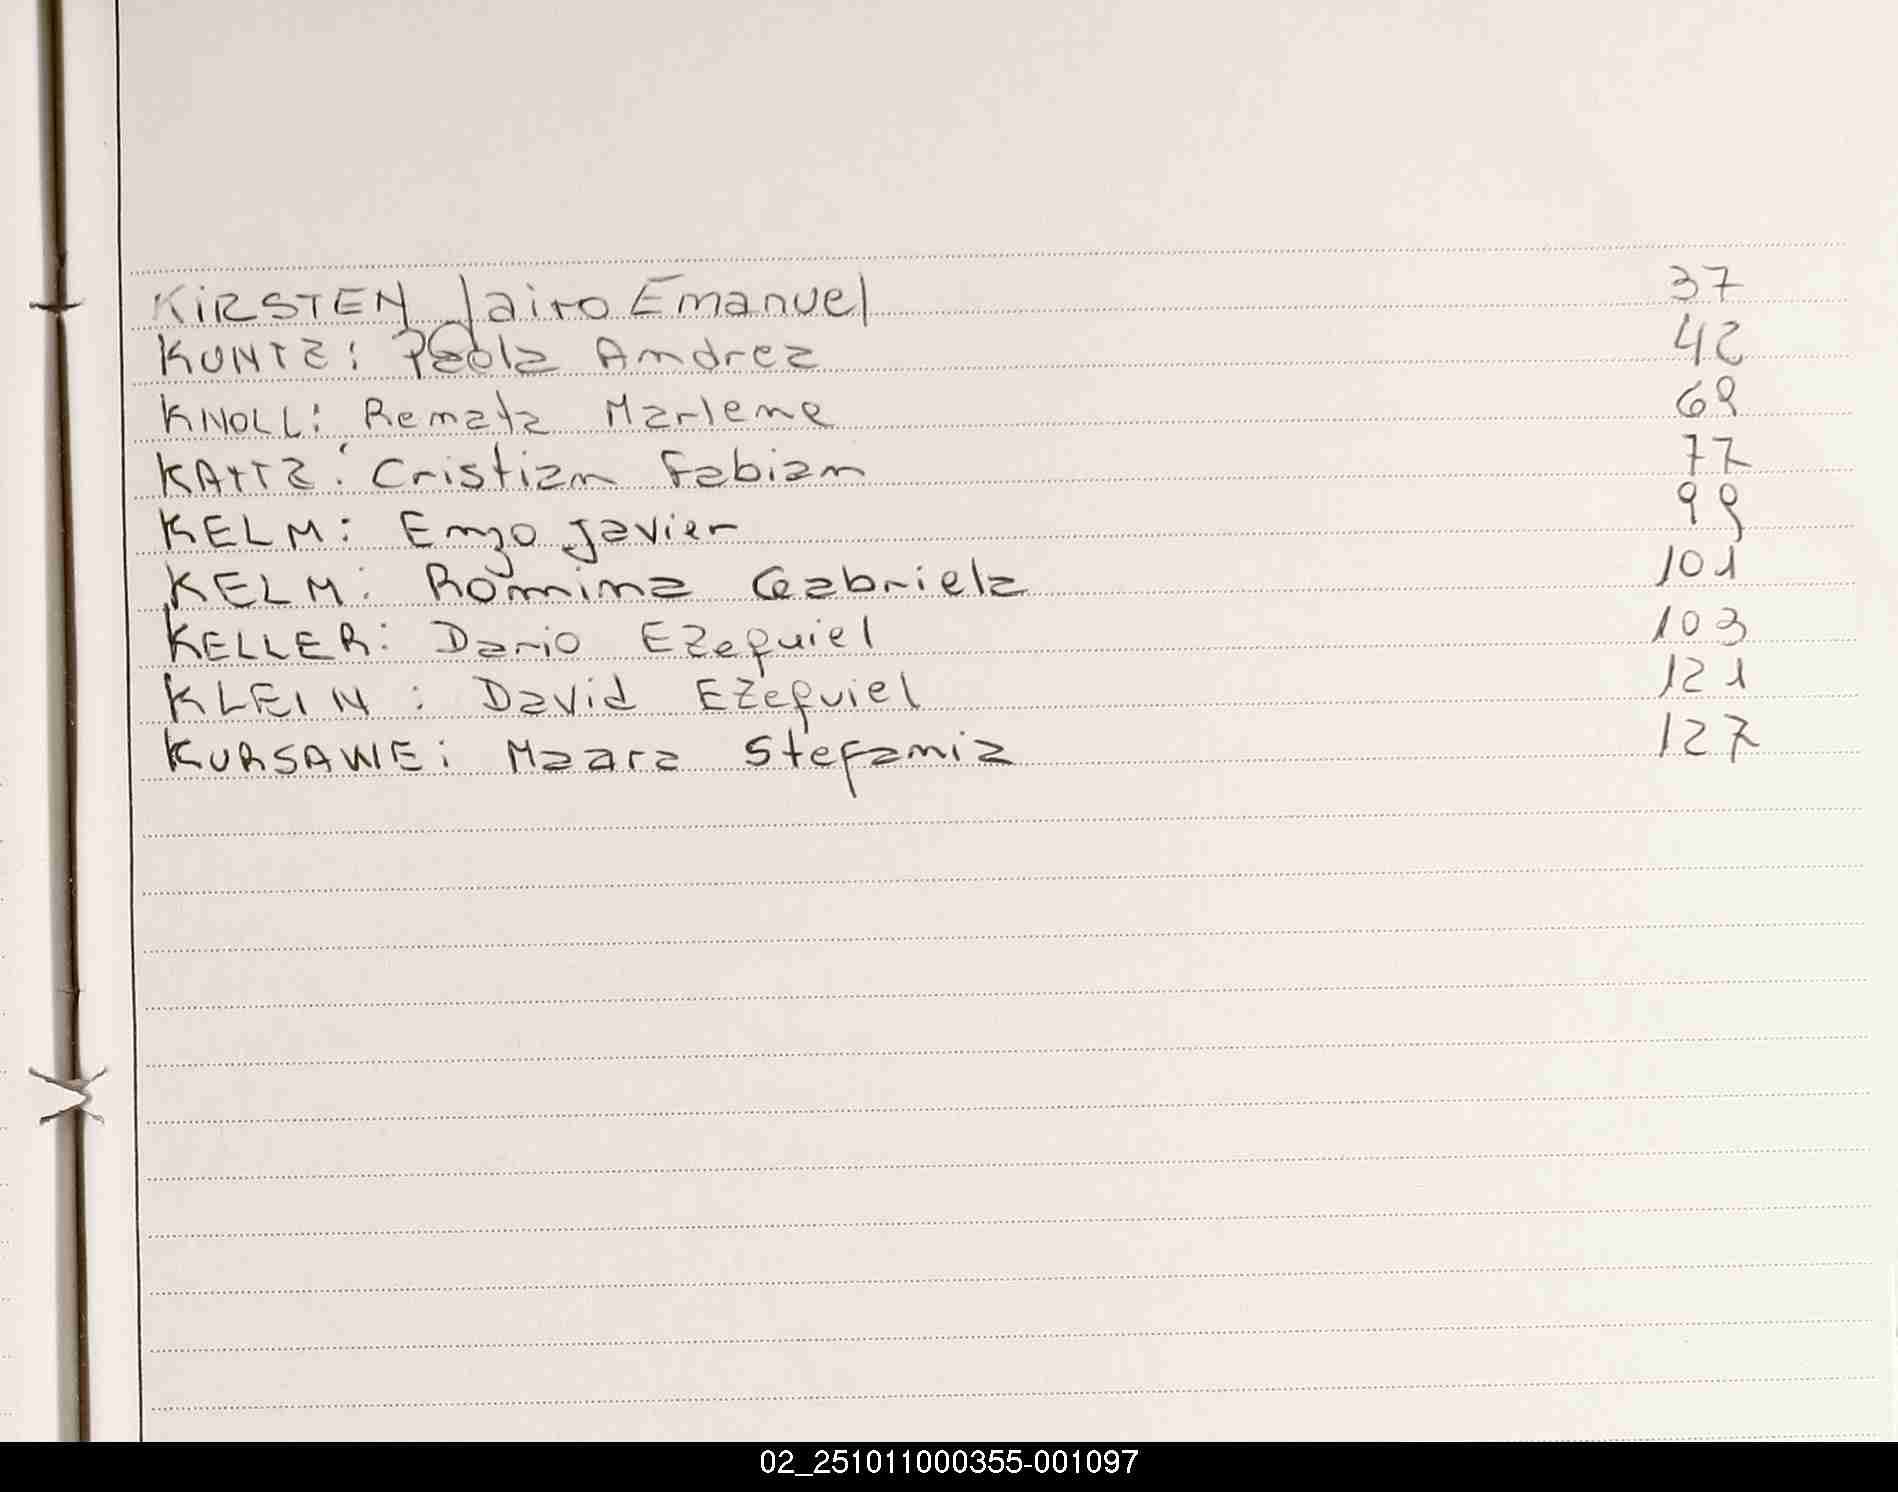 KIRSTEN Jairo Emanuel 37
KUNTZ: Paola Andrea 42
KNOLL: Renata Marlene 69
KATTZ: Cristian Fabian 77
KELM: Enzo Javier 99
KELM: Romina Gabriela 101
KELLER: Dario EZequiel 103
KLEIN: David EZequiel 121
KURSAWE: Maara Stefania 127
02_251011000355-001097